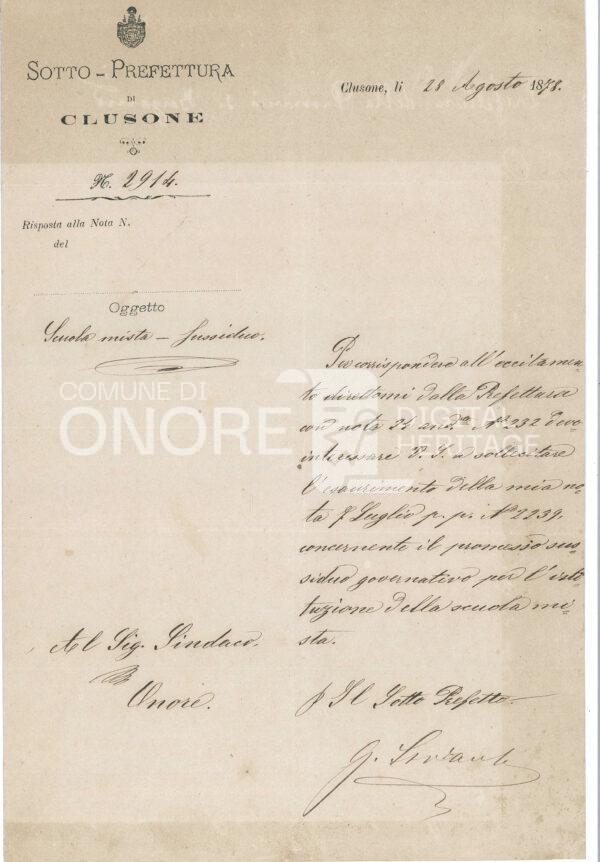 SOTTO-PREFETTURA
DI
CLUSONE
Clusone, li 28 Agosto 1878.
N. 2914.
Risposta alla Nota N.
del
Oggetto
Scuola mista - Sussidio.
Per corrispondere all'eccitamen-
to direttomi dalla Prefettura
con nota 24 and.e N° 232 devo
interessare V. S. a sollecitare
l'esaurimento della mia no-
ta 7 Luglio p. p. N° 2239.
concernente il promesso sus-
sidio governativo per l'isti-
tuzione della scuola mi-
sta.
Al Sig. Sindaco.
Onore.
Il Sotto Prefetto
G.
COMUNE DI
ONORE
DIGITAL
HERITAGE